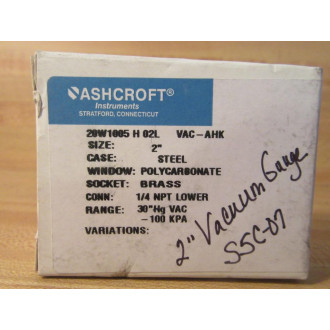 ASHCROFT®
Instruments
STRATFORD, CONNECTICUT
20W1005 H 02L VAC-AHK
SIZE: 2"
CASE: STEEL
WINDOW: POLYCARBONATE
SOCKET: BRASS
CONN: 1/4 NPT LOWER
RANGE: 30"Hg VAC
-100 KPA
VARIATIONS:
2" Vacuum Gauge
SSC-07